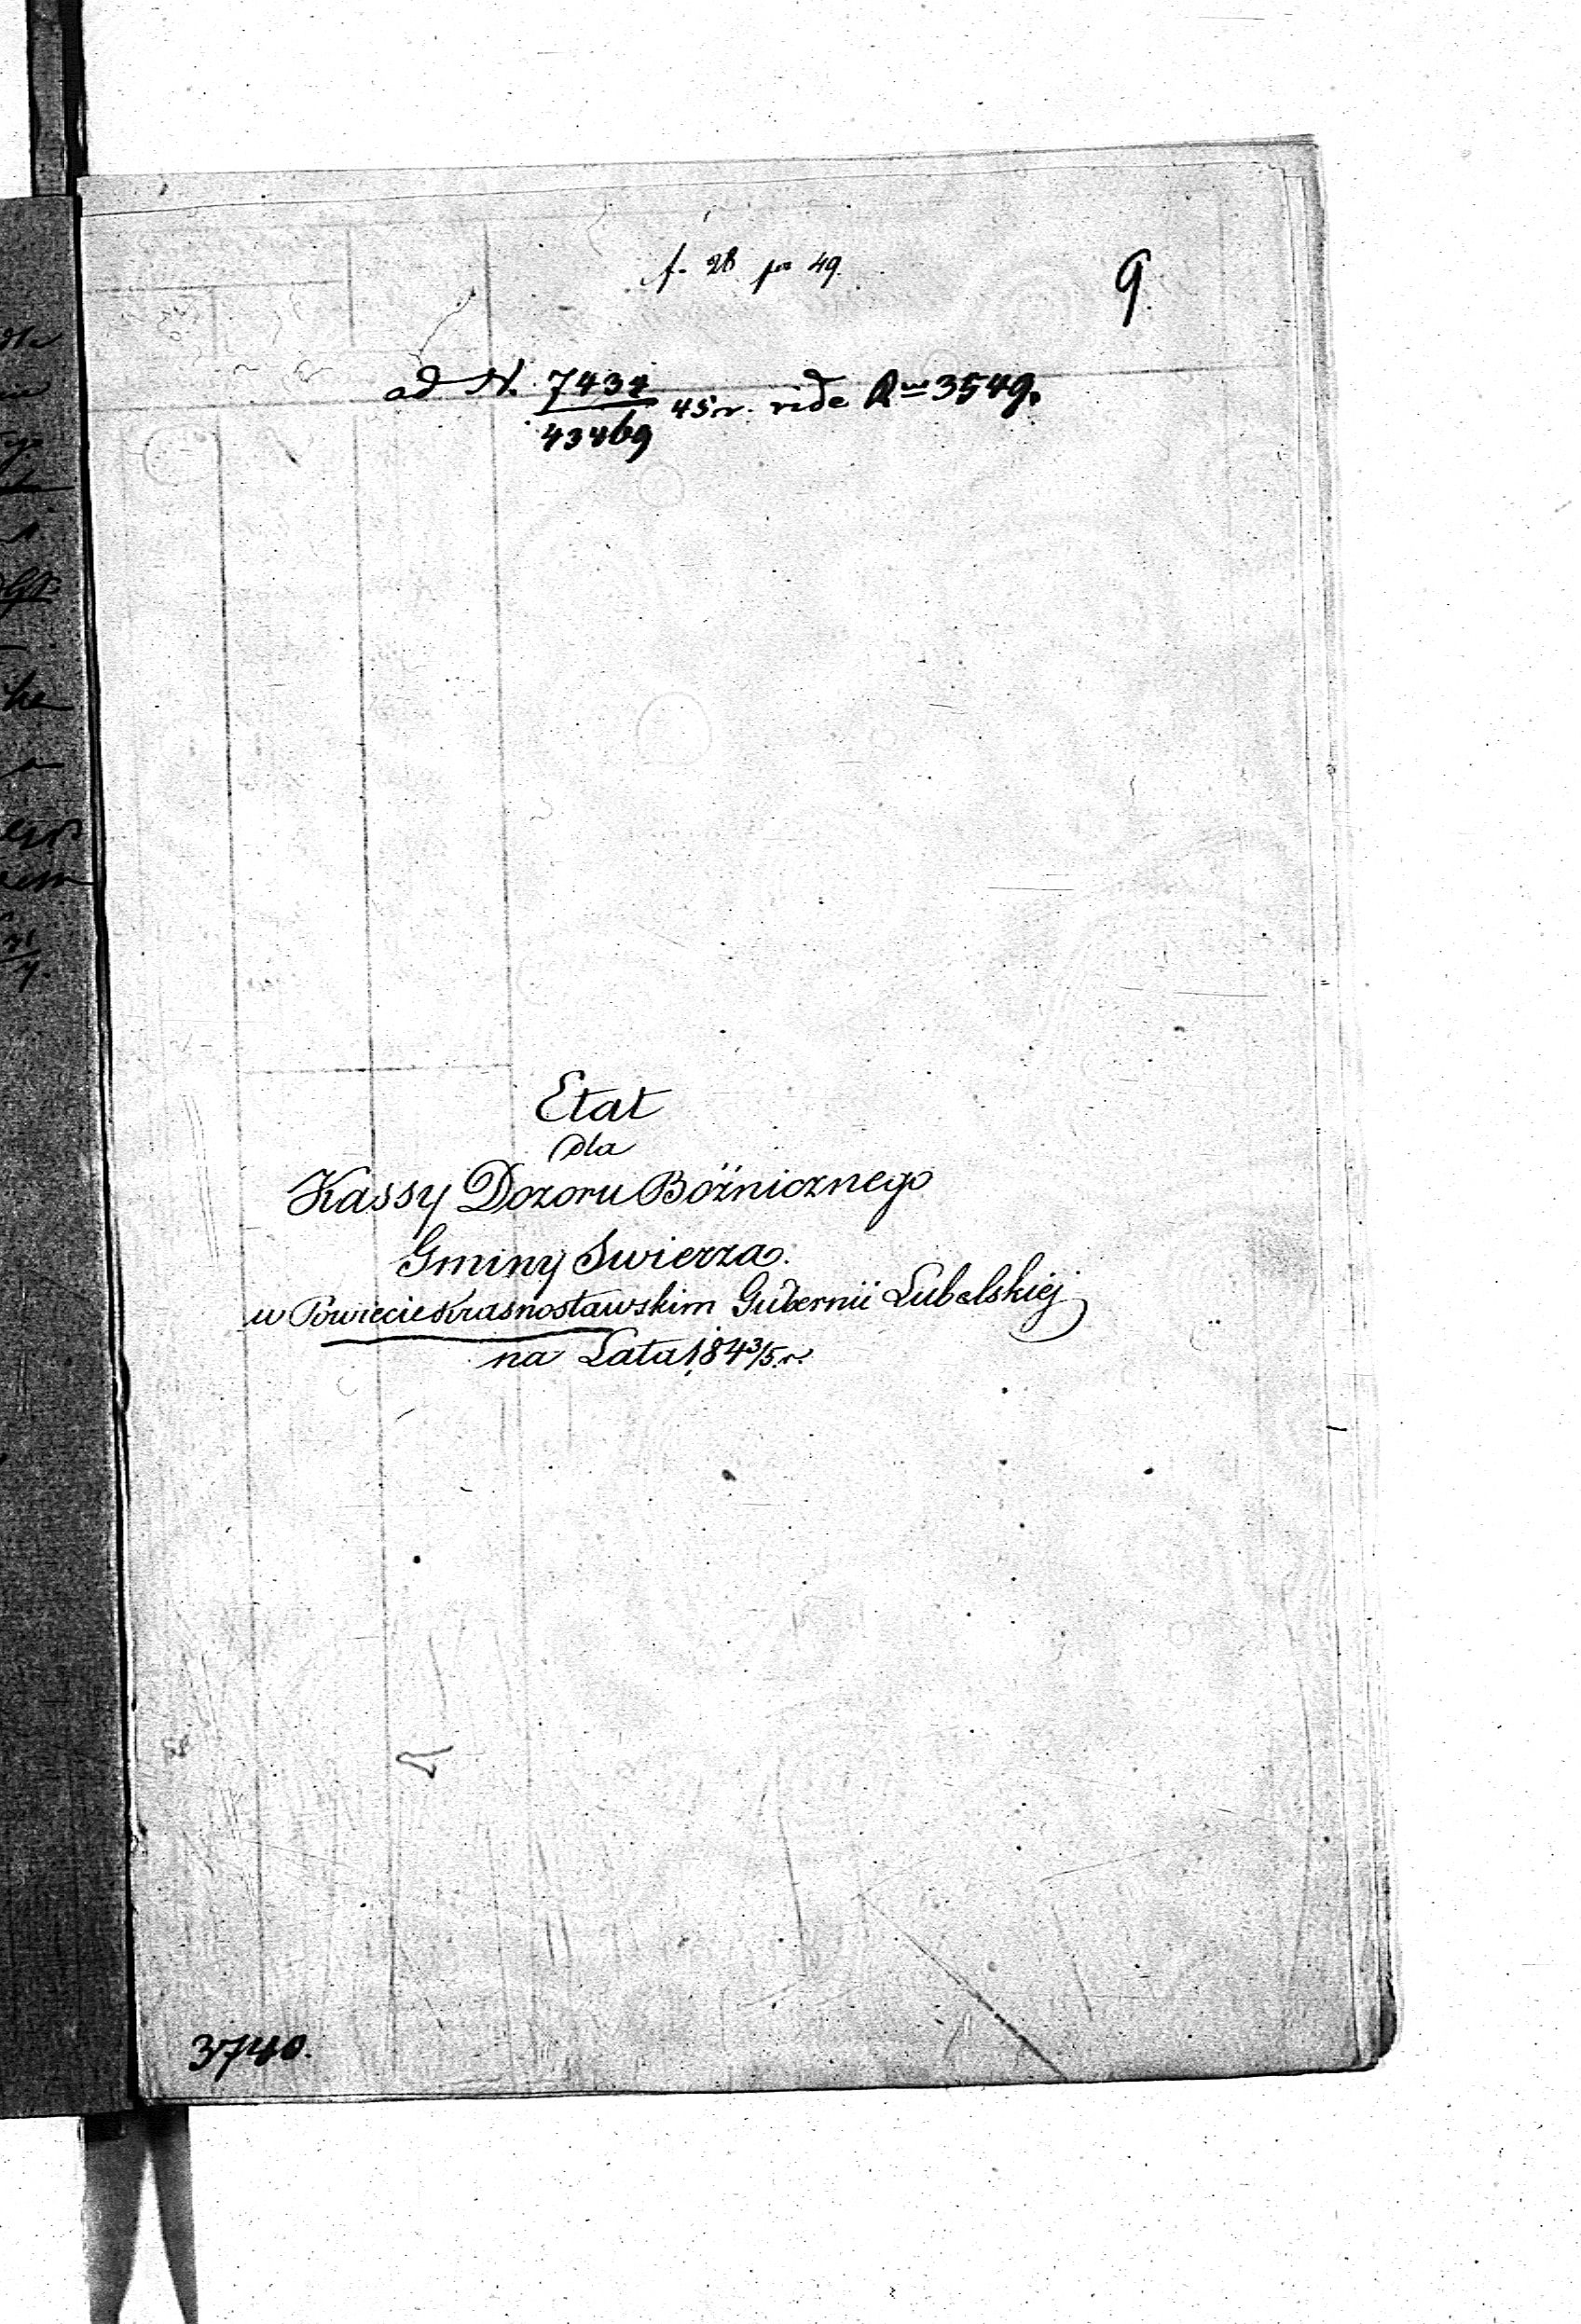 f. 28 pa 49.
9.
ad N. 7434/43469 45 r. vide Rum 3549.
Etat
dla
Kassy Dozoru Bóźnicznego
Gminy Swierza.
w Powiecie Krasnostawskim Gubernii Lubelskiej
na Lata 184 3/5. r.
3740.